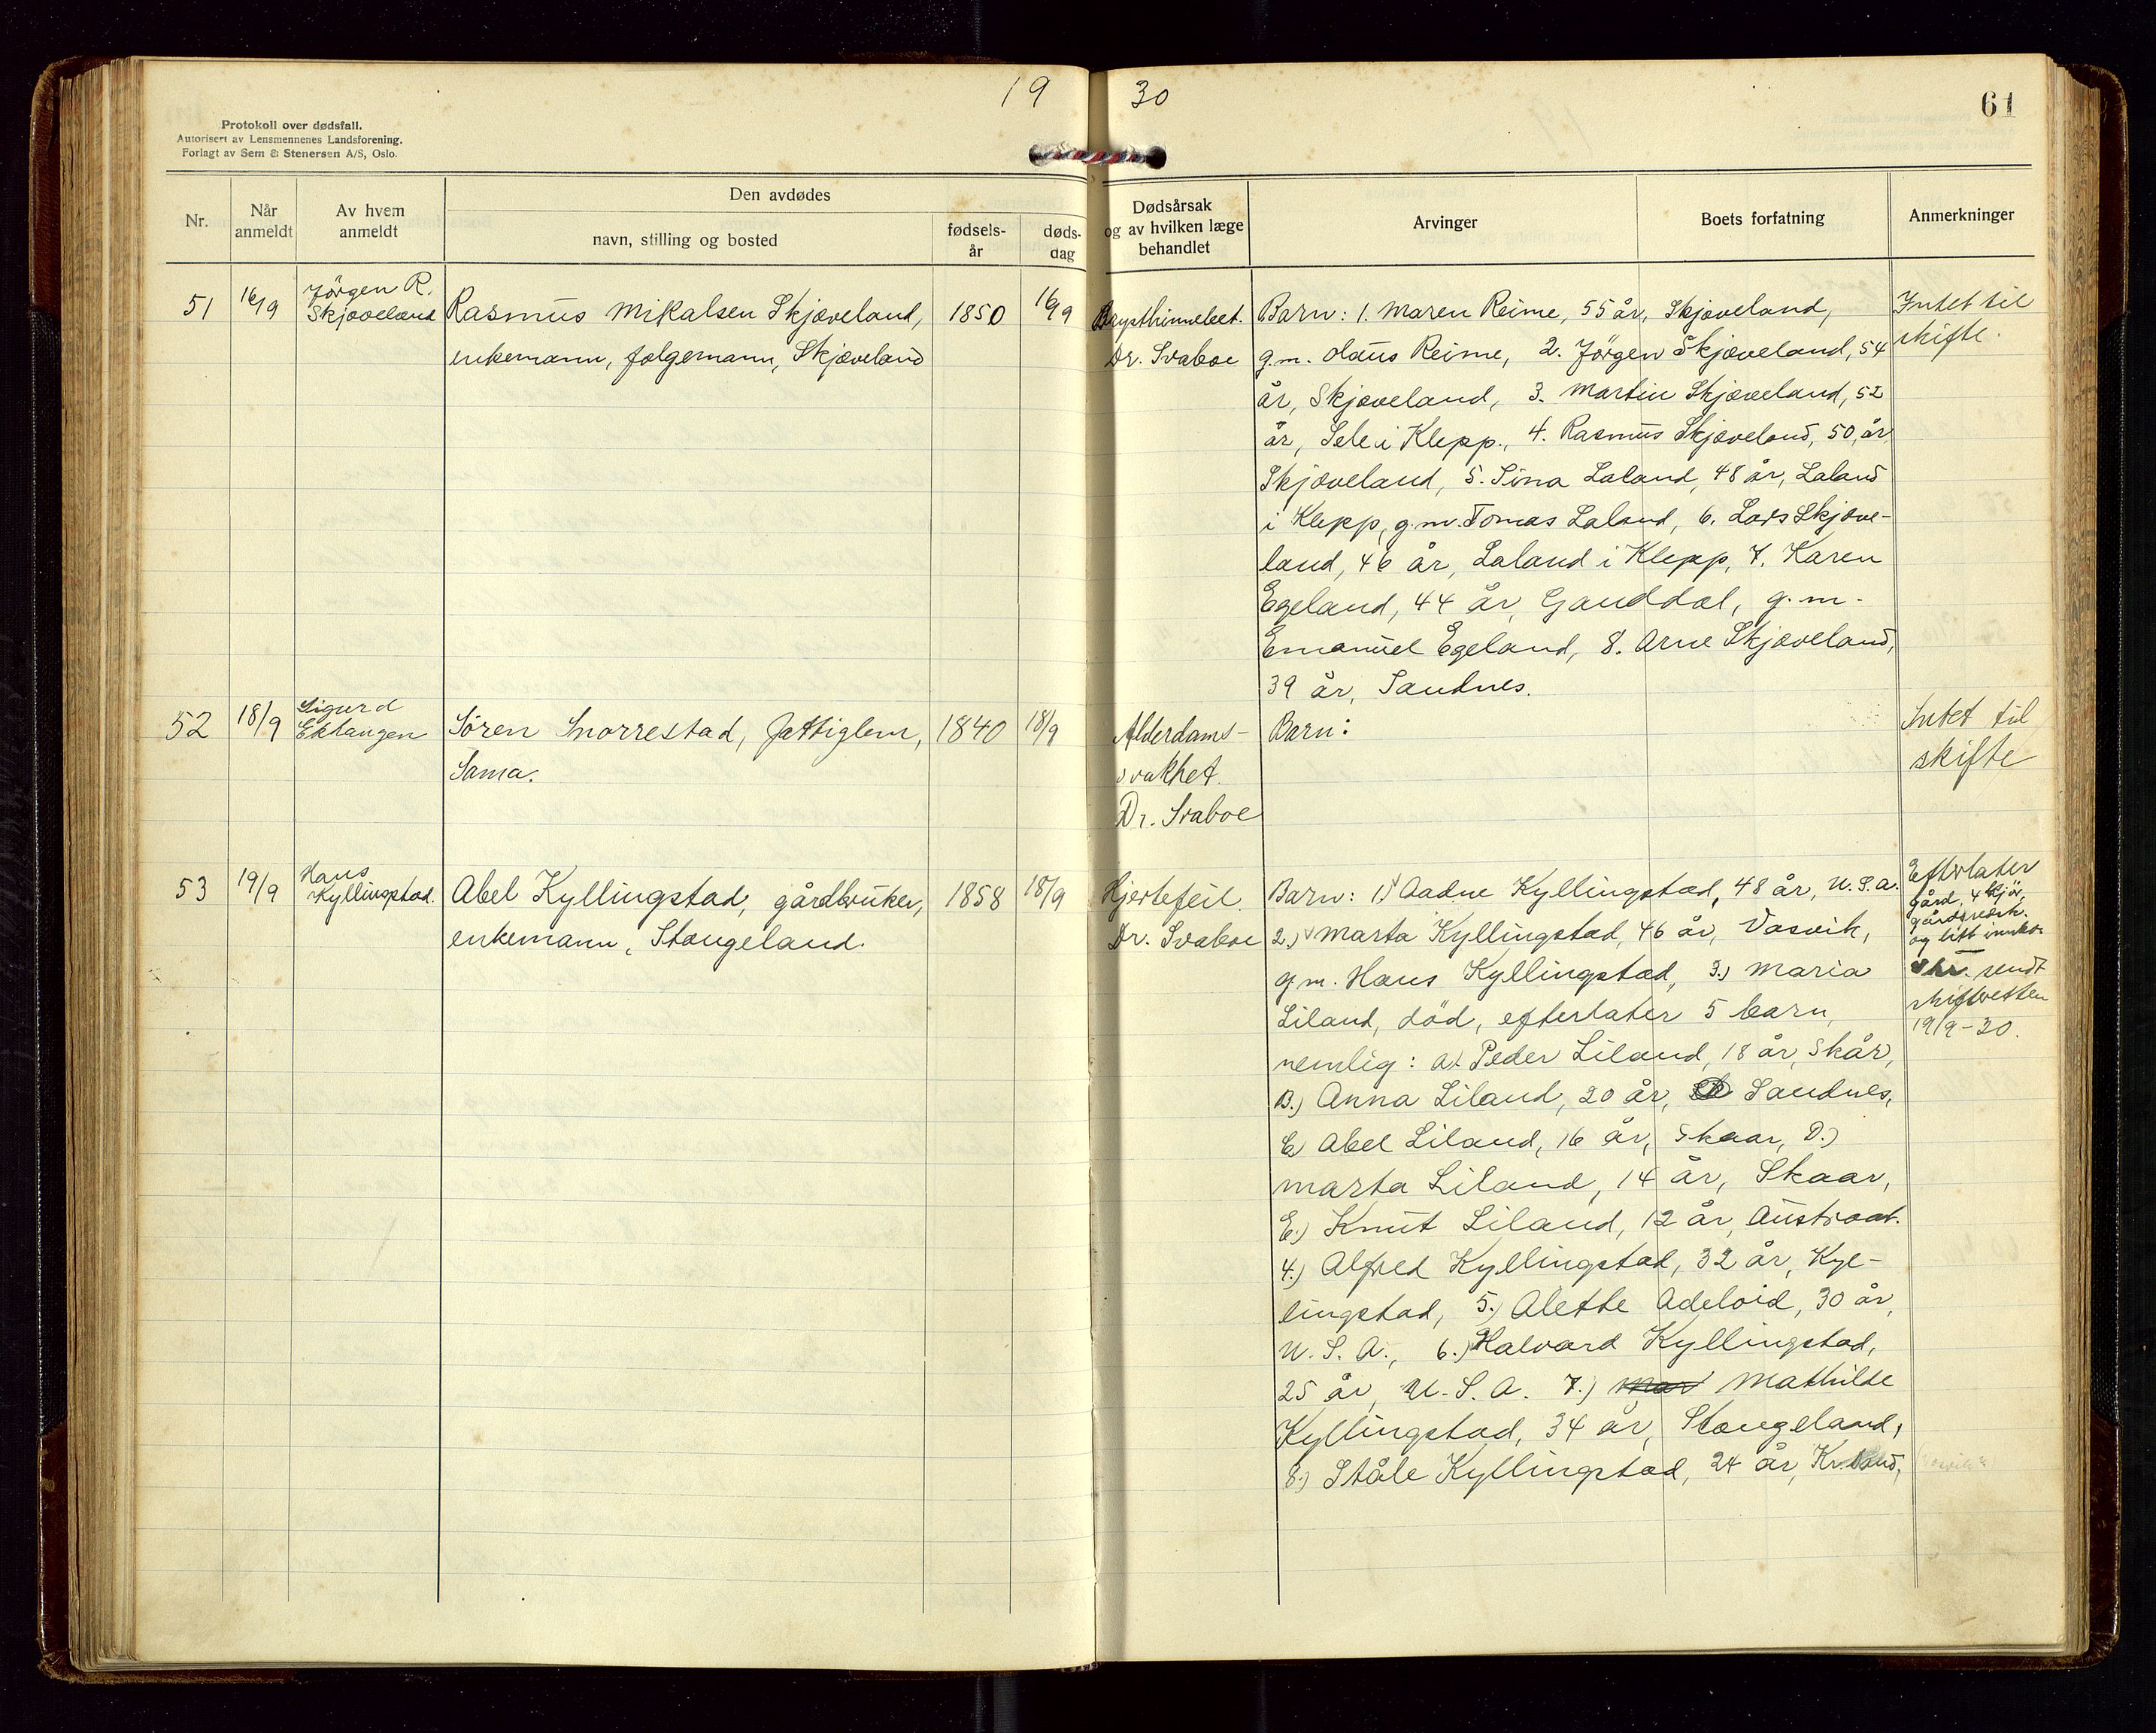 19 30
61
Protokoll over dødsfall.
Autorisert av Lensmennenes Landsforening.
Forlagt av Sem & Stenersen A/S, Oslo.
Nr.
Når anmeldt
Av hvem anmeldt
Den avdødes
navn, stilling og bosted
fødsels-år
døds-dag
Dødsårsak og av hvilken læge behandlet
Arvinger
Boets forfatning
Anmerkninger
51
16/9
Jörgen R.
Skjæveland
Rasmus Mikalsen Skjæveland,
enkemann, folgemann, Skjæveland
1850
16/9
Brysthinnebet.
Dr. Svaboe
Barn: 1. Maren Reime, 55 år, Skjæveland,
g.m. Olaus Reime, 2. Jörgen Skjæveland, 54
år, Skjæveland, 3. Martin Skjæveland, 52
år, Sele i Klepp., 4. Rasmus Skjæveland, 50, år
Skjæveland, 5. Sina Laland, 48 år, Laland
i Klepp, g.m. Tomas Laland, 6. Lars Skjæve-
land, 46 år, Laland i Klepp, 7. Karen
Egeland, 44 år, Ganddal, g.m.
Emanuel Egeland, 8. Arne Skjæveland,
39 år, Sandnes.
Intet til
skifte.
52
18/9
Sigurd
Ektangen
Sören Snorrestad, fattiglem,
Soma.
1840
18/9
Alderdoms-
svakhet
Dr. Svaboe
Barn:
Intet til
skifte
53
19/9
Hans
Kyllingstad.
Abel Kyllingstad, gårdbruker,
enkemann, Stangeland.
1858
18/9
Hjertefeil.
Dr. Svaboe
Barn: 1) Aadne Kyllingstad, 48 år, U.S.A.
2.) Marta Kyllingstad, 46 år, Vasvik,
g.m. Hans Kyllingstad, 3.) Maria
Liland, död, efterlater 5 barn,
nemlig: A. Peder Liland, 18 år, Skår,
B.) Anna Liland, 20 år, Sandnes,
C) Abel Liland, 16 år, Skaar, D.)
Marta Liland, 14 år, Skaar,
E.) Knut Liland, 12 år, Austraat.
4.) Alfred Kyllingstad, 32 år, Kyl-
lingstad, 5.) Alette Adeloid, 30 år,
U.S.A., 6.) Halvard Kyllingstad,
25 år, U.S.A. 7.) Mar Mathilde
Kyllingstad, 34 år, Stangeland,
8.) Ståle Kyllingstad, 24 år, Kr.sand,
Efterlater
gård, 4 kjör,
gårdsredsk.
og litt innbo.
sendt
skifteretten
19/9-30.